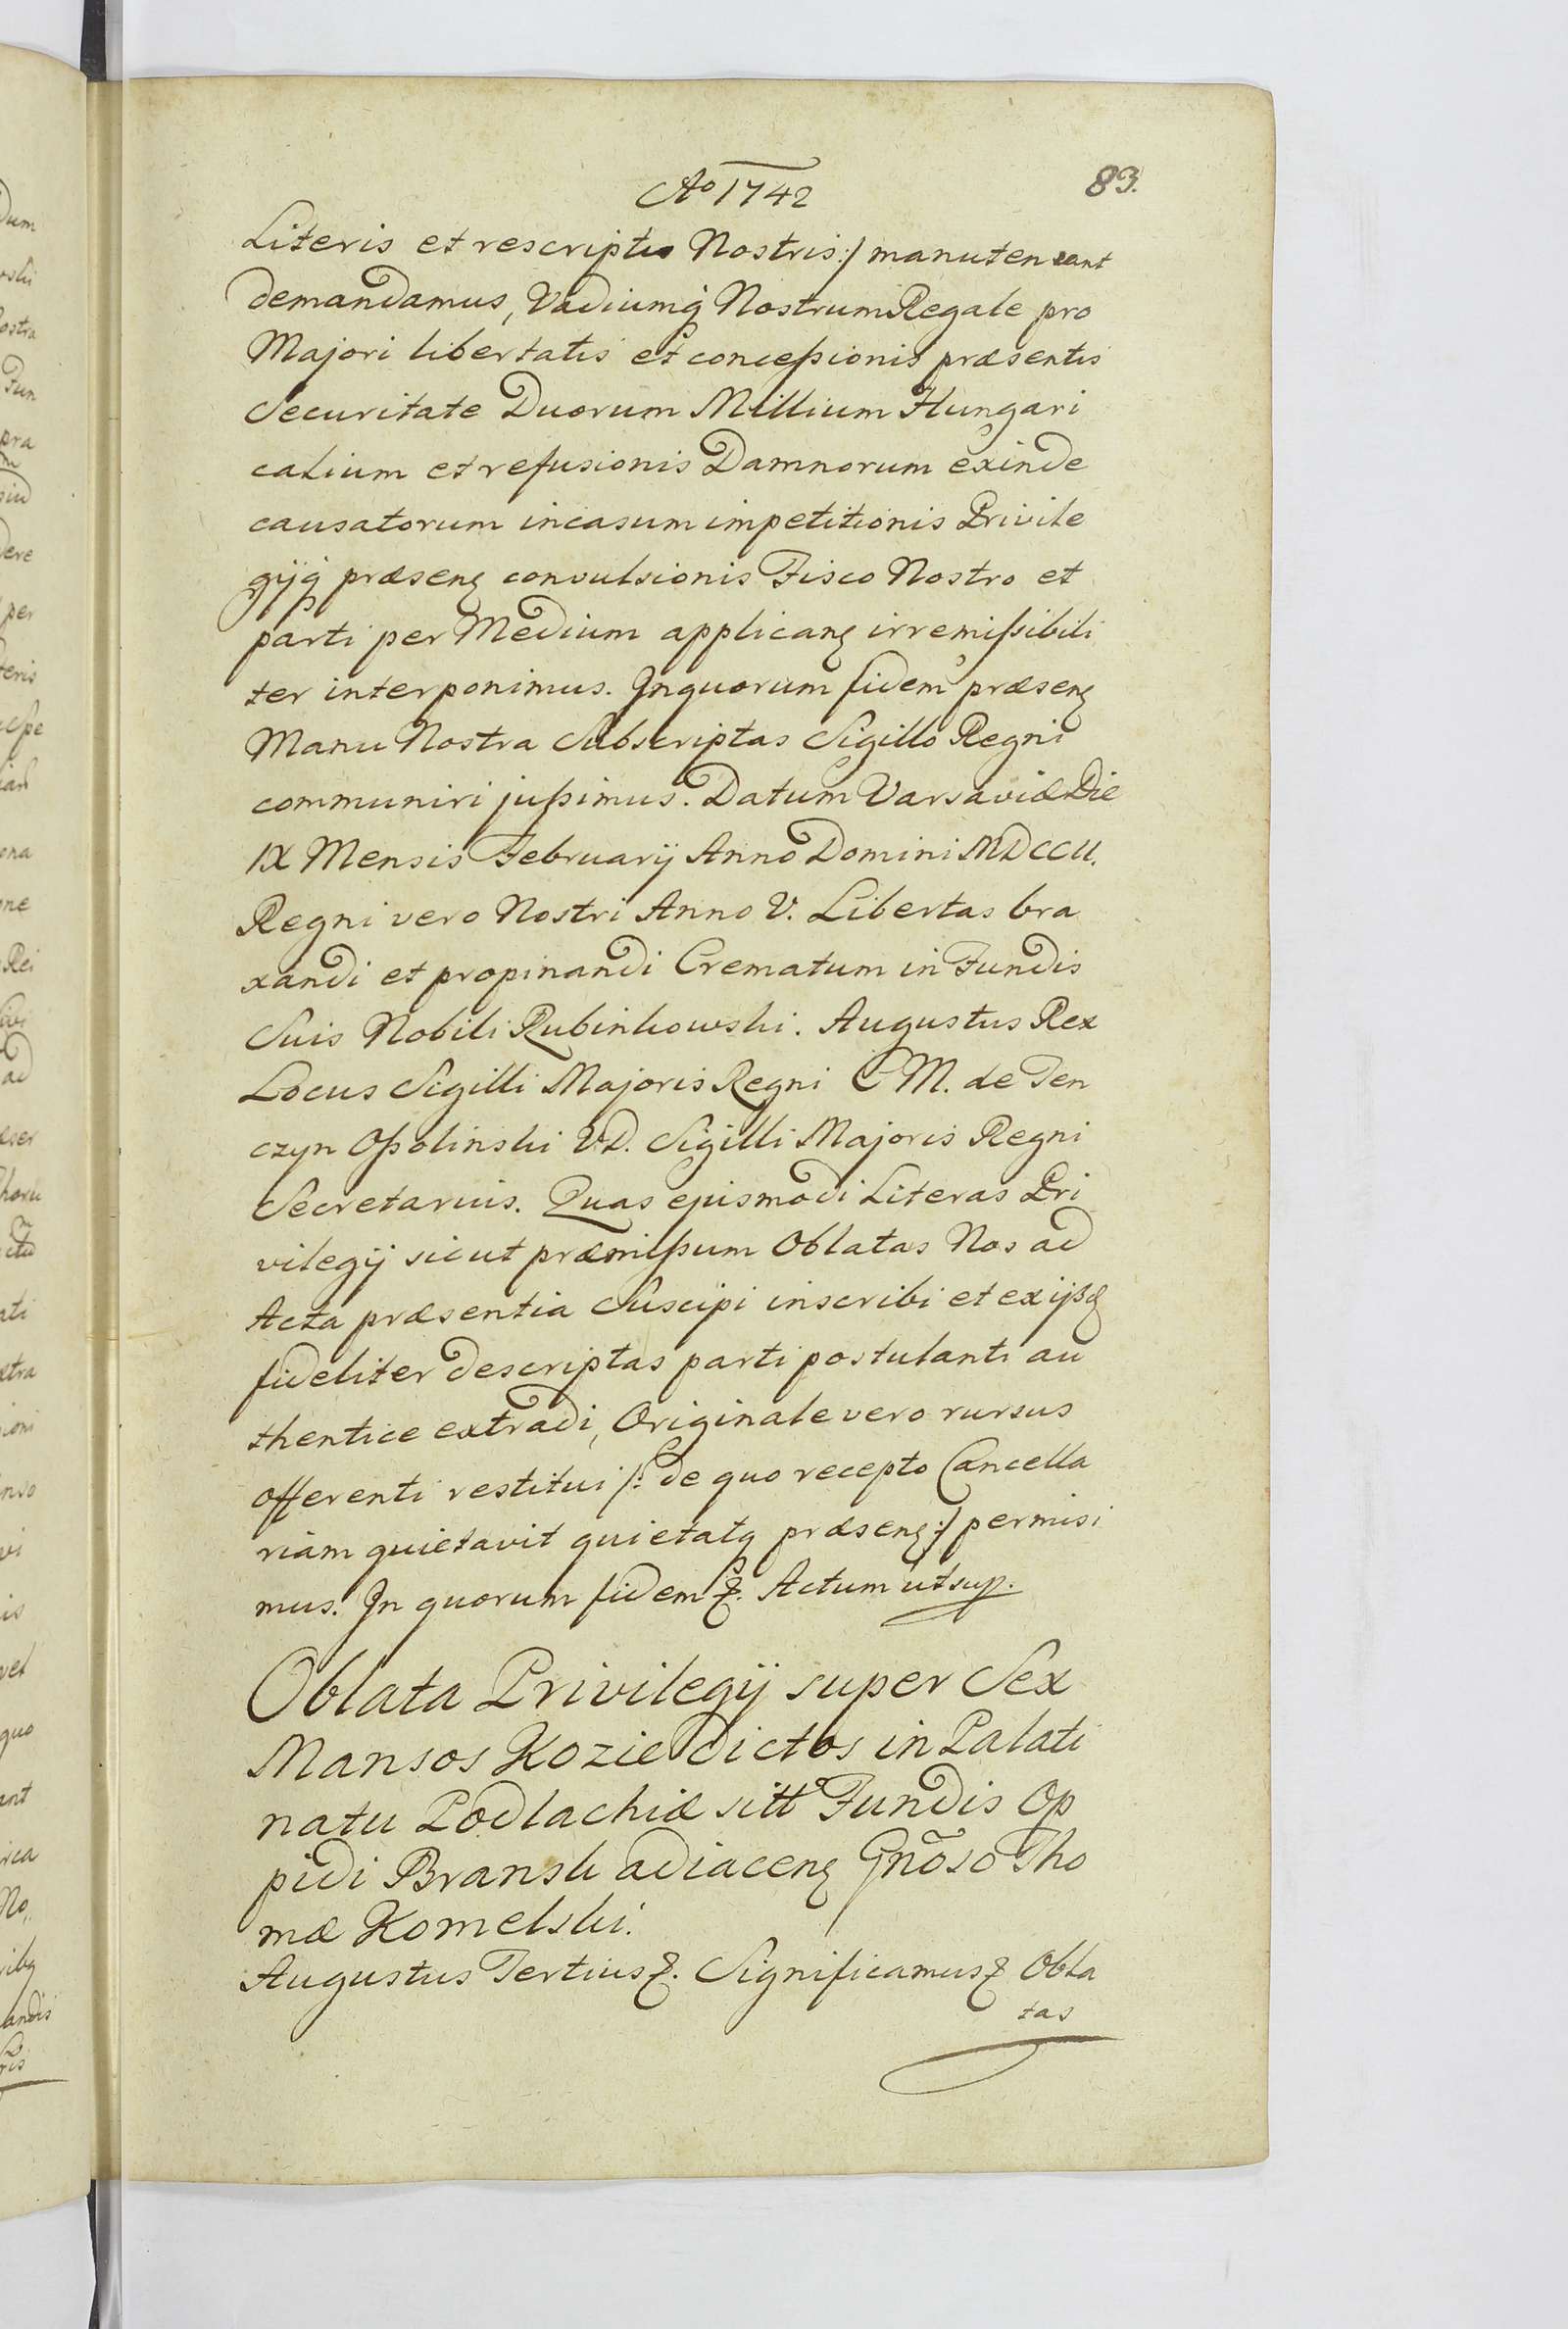 Ao 1742
83.
Literis et rescriptis Nostris:/ manuteneant
demandamus, Vadiumq Nostrum Regale pro
Majori libertatis et conceßionis præsentis
Securitate Duorum Millium Hungari
calium et refusionis Damnorum exinde
causatorum in casum impetitionis Privile
gijq præsenz convulsionis Fisco Nostro et
parti per Medium applicanz irremißibili
ter interponimus. In quorum fidem præsenz
Manu Nostra Subscriptas Sigillo Regni
communiri jußimus. Datum Varsaviæ Die
IX Mensis Februarij Anno Domini MDCCII.
Regni vero Nostri Anno V. Libertas bra
xandi et propinandi Crematum in Fundis
Suis Nobili Rubinkowski. Augustus Rex
Locus Sigilli Majoris Regni C M. de Ten
czyn Oßolinski VD. Sigilli Majoris Regni
Secretarius. Quas ejusmodi Literas Pri
vilegij sicut præmißum Oblatas Nos ad
Acta præsentia Suscipi inscribi et ex ijsd
fideliter descriptas parti postulanti au
thentice extradi, Originale vero rursus
offerenti restitui /: de quo recepto Cancella
riam quietavit quietatq præsenz:/ permisi
mus. In quorum fidem &. Actum ut sup.
Oblata Privilegij super Sex
Mansos Kozie dictos in Palati
natu Podlachiæ sitt° Fundis Op
pidi Bransk adiacenz Gnõso Tho
mæ Komelski.
Augustus Tertius &. Significamus & Obla
tas